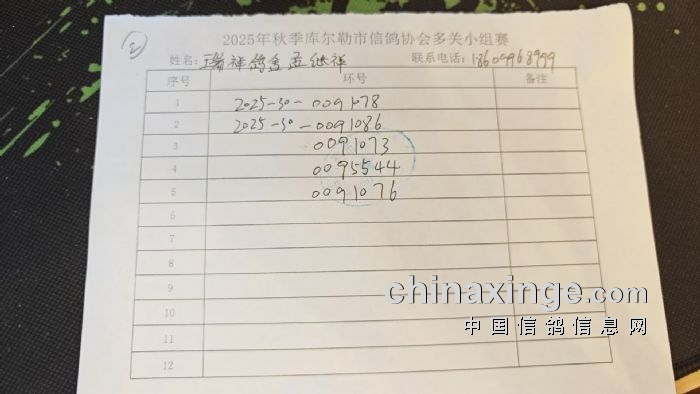 ③
2025年秋季库尔勒市信鸽协会多关小组赛
姓名: 瑞祥鸽舍 孟继祥 联系电话: 18609968999
序号 环号 备注
1 2025-30-0091078
2 2025-30-0091086
3 0091073
4 0095544
5 0091076
6
7
8
9
10
11
12
chinaxinge.com
中国信鸽信息网